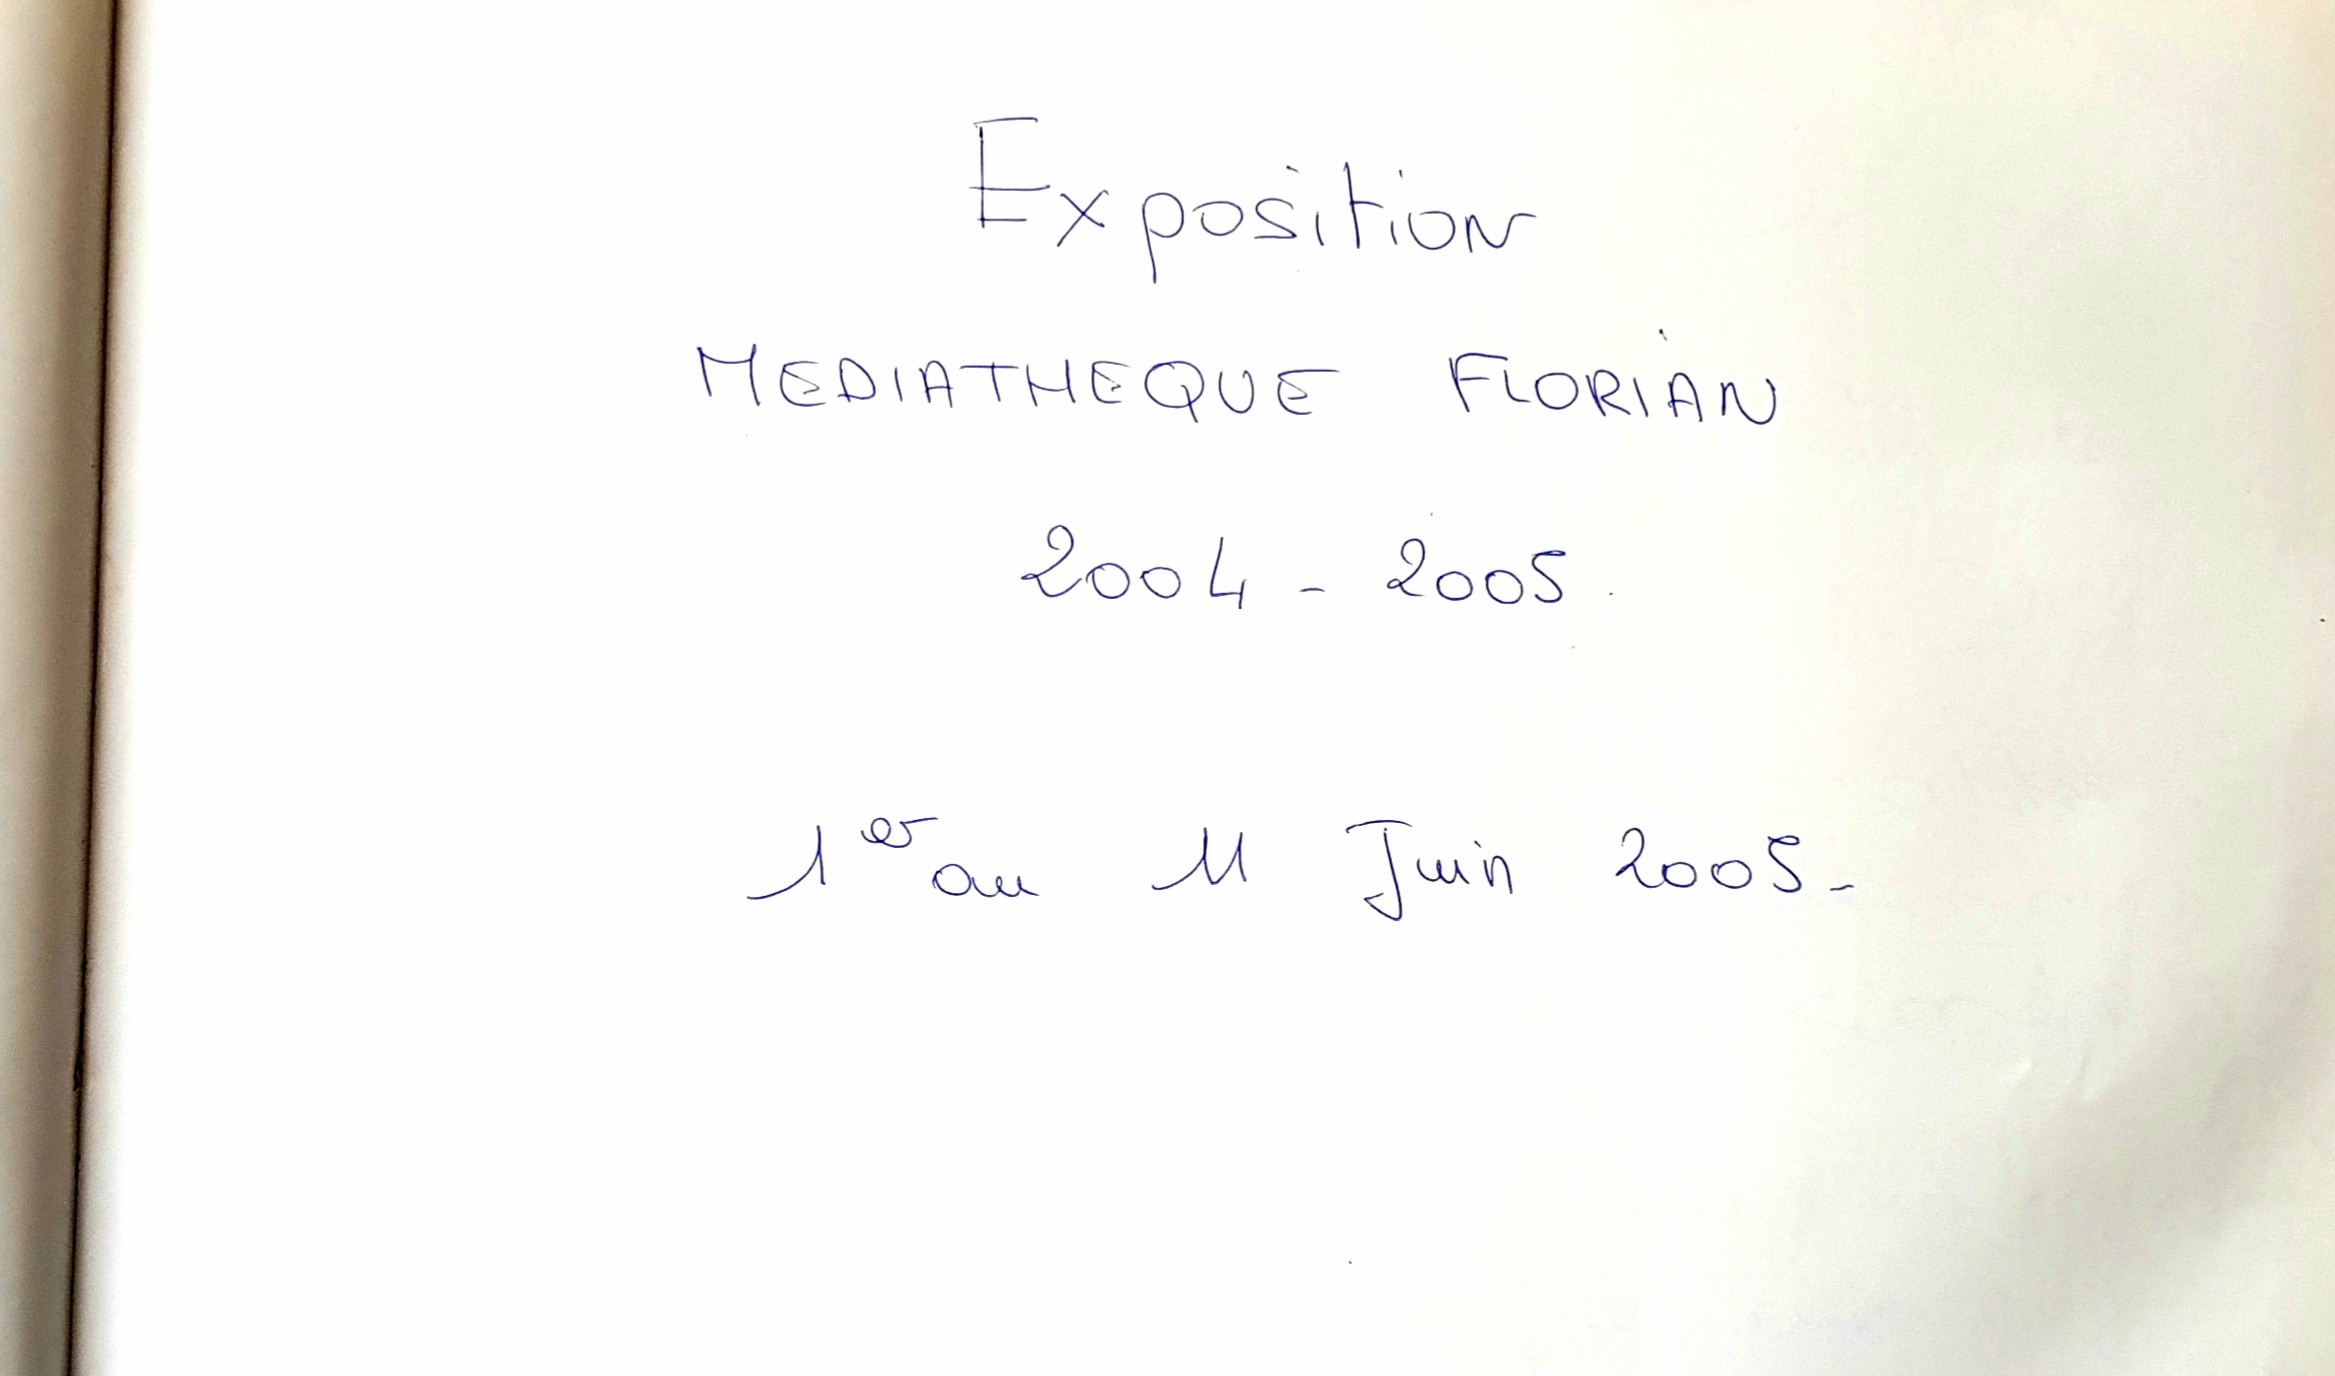 Exposition
MEDIATHEQUE FLORIAN
2004 - 2005.
1er au 11 Juin 2005-